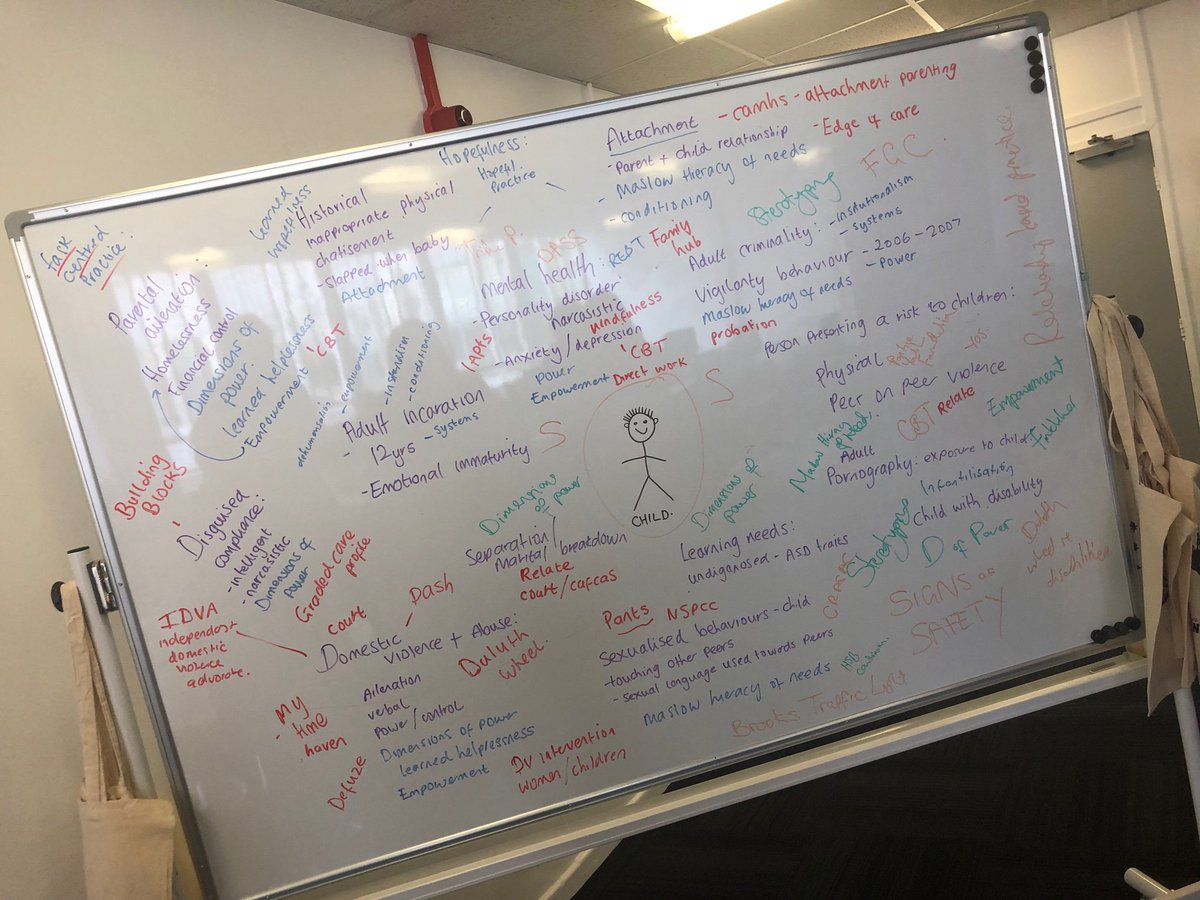 Task
Centred
Practice:
Learned
Helplessness
Hopefulness:
Hopeful
Practice
Historical
inappropriate physical
chatisement
- Slapped when baby
Attachment
Attachment
- camhs - attachment parenting
- Edge of care
- Parent + child relationship
- Maslow hieracy of needs
- conditioning
FGC
Sterotyping
Relationship based practice
Parental
alienation:
Homelessness
Financial control
Dimensions of
power:
learned helplessness
Empowerment
'CBT
dehumanisation
- empowerment
- conditioning
OASS
Mental health:
REBT
Family
hub
- Personality disorder
narcasistic
mindfulness
- Anxiety/depression
IAPTS
'CBT
Direct work
power
Empowerment
Adult criminality:
- institutionalism
- systems
Vigilanty behaviour
- 2006-2007
- power
Maslow hieracy of needs
probation
Person presenting a risk to children:
Physical
Peer on peer violence
CBT
Relate
Empowerment
Adult
Pornography: exposure to child
Infantilisation
Child with disability
Sterotyping
D of Power
Duluth
wheel
disabilities
Adult Incaration
- 12yrs
- Systems
- Emotional immaturity
S
S
CHILD.
Dimensions
of power
Dimensions of
power
Separation/
marital breakdown
Relate
court/cafcas
Learning needs:
undiganosed - ASD traits
Building
Blocks
Disguised
compliance:
- intelligent
- narcasistic
Dimensions of
power
Graded care
profile
court
Dash
IDVA
independant
domestic
violence
advorate.
Domestic
Violence + Abuse:
Duluth
wheel
Alienation
verbal
power/control
My
time
haven
Defuze
Dimensions of power
learned helpressness
Empowerment
DV intervention
women/children
Pants
NSPCC
Sexualised behaviours - child
- touching other peers
- sexual language used towards peers
Maslow hieracy of needs
HSB
SIGNS OF
SAFETY
Brooks Traffic Light